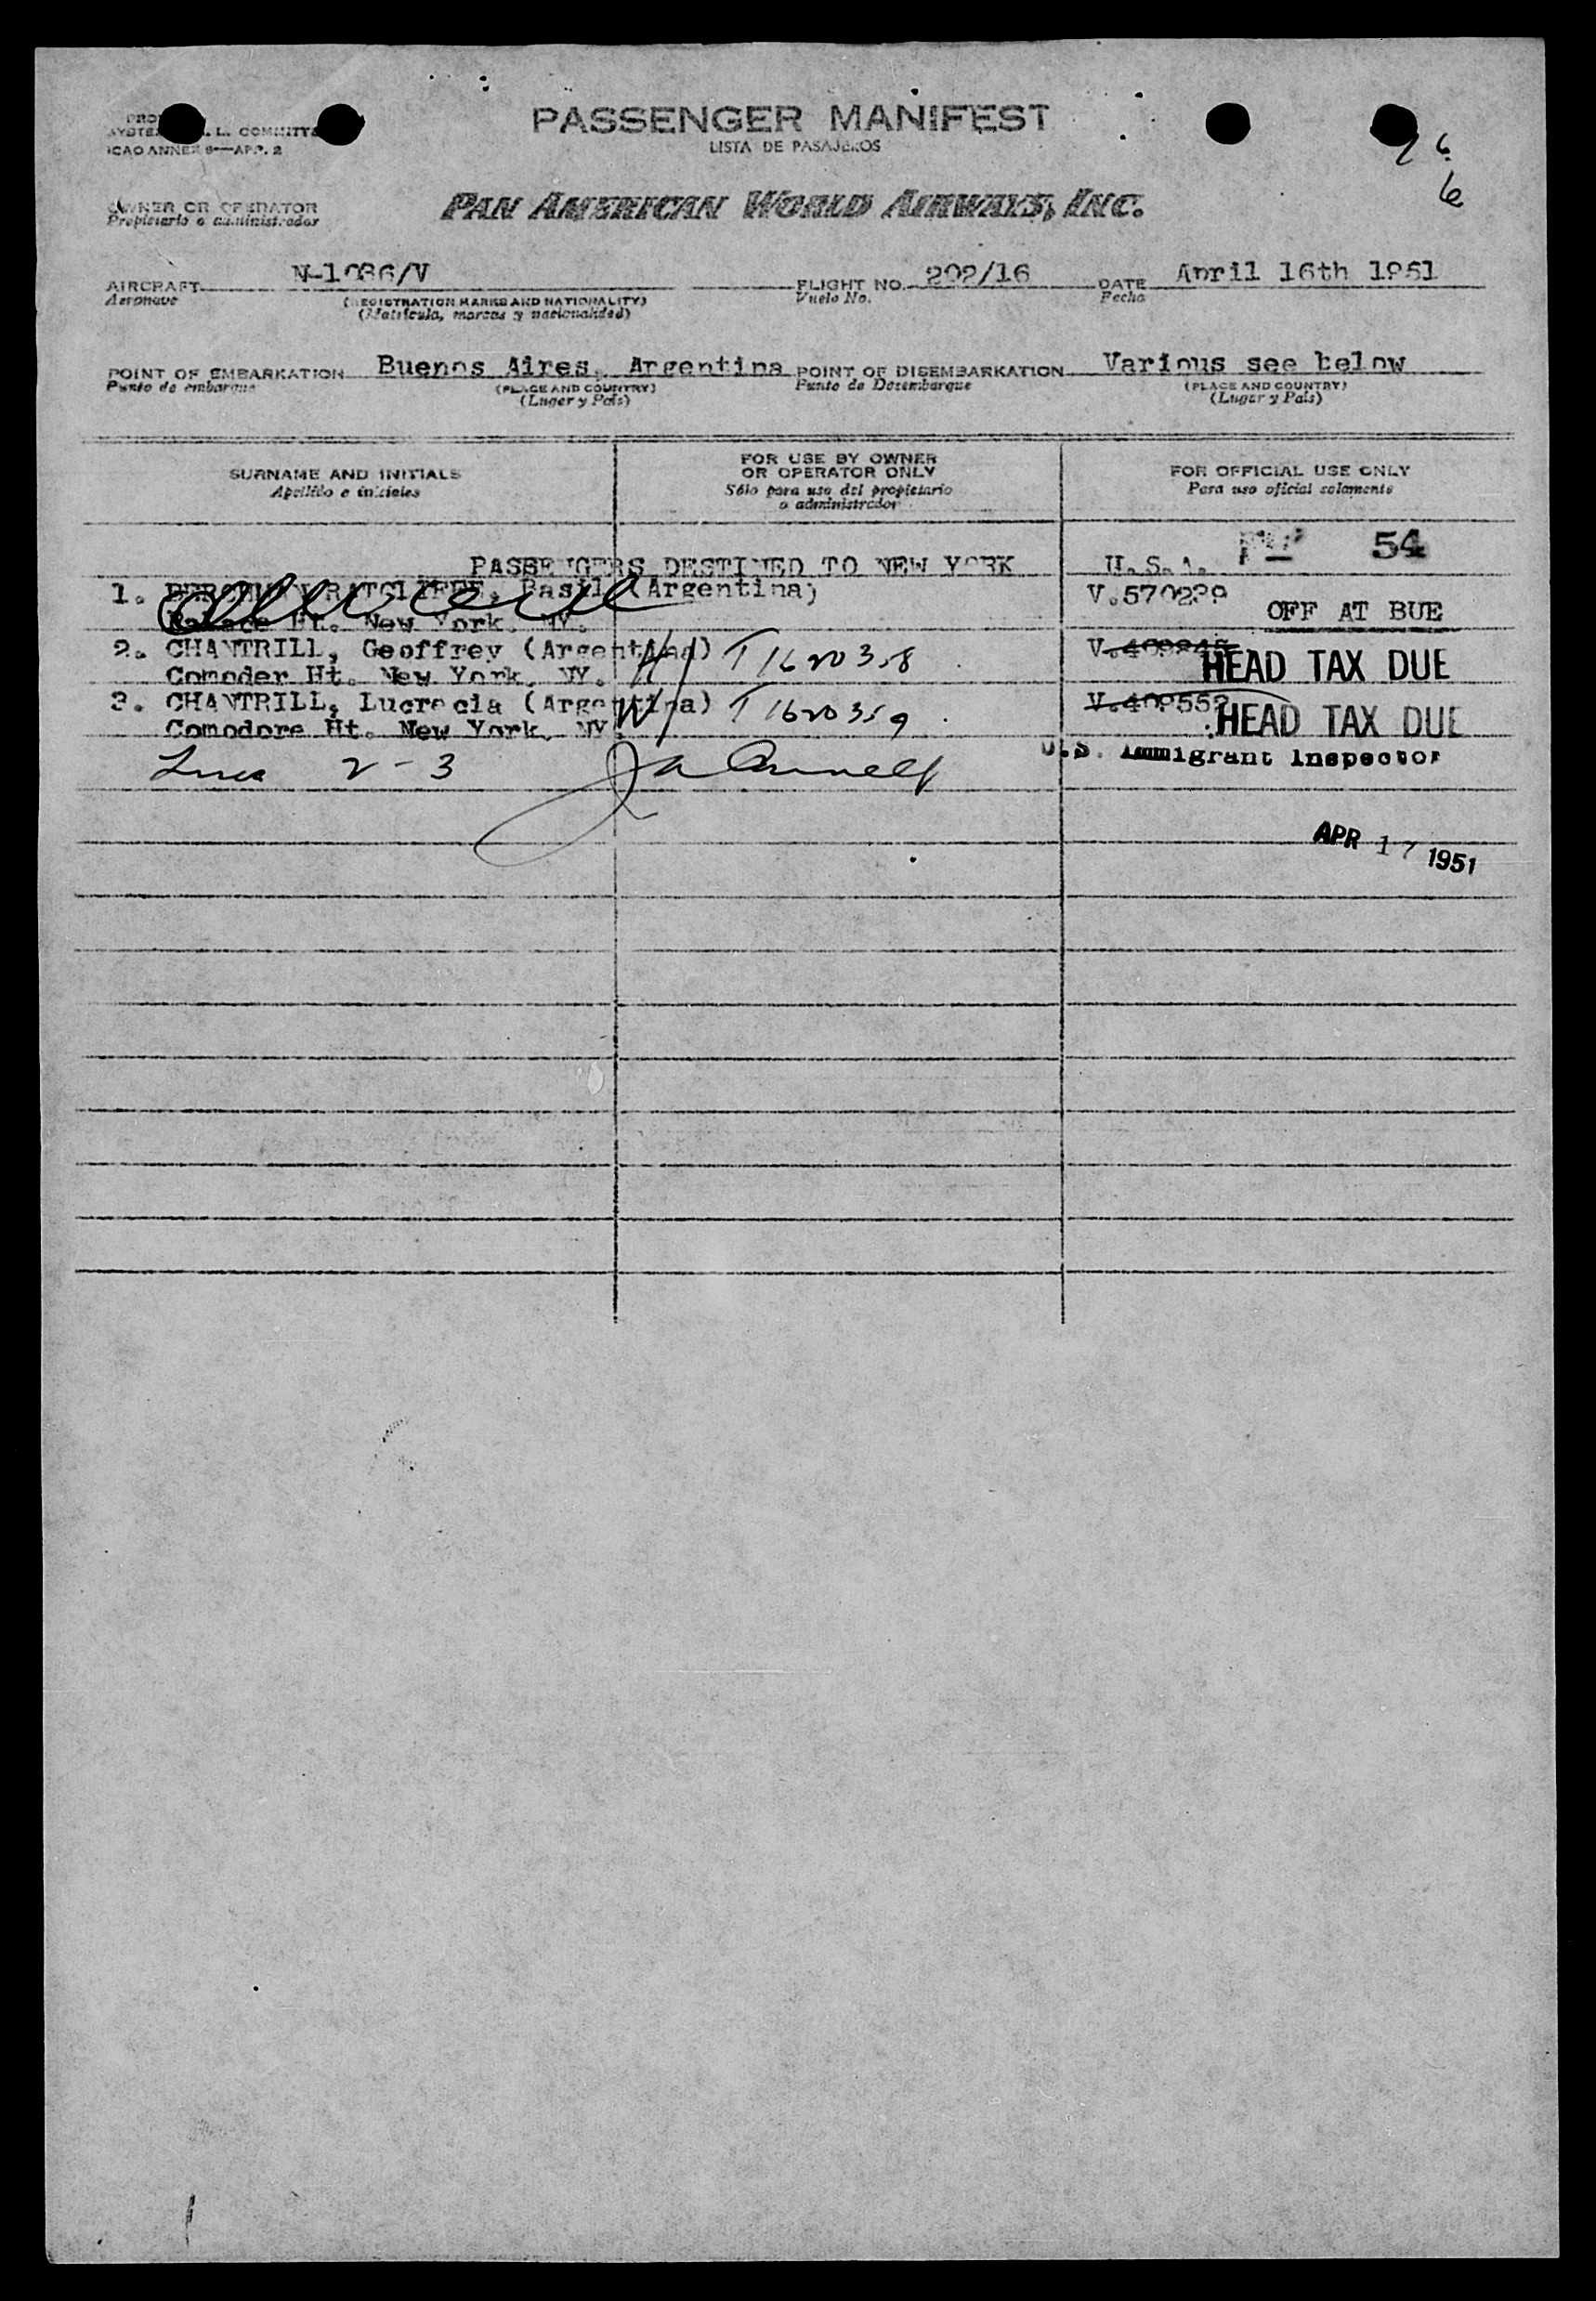 PASSENGER MANIFEST
LISTA DE PASAJEROS
L. COMMITTE
ICAO ANNEX 9—APP. 2
6
OWNER OR OPERATOR
Propietario o administrador
PAN AMERICAN WORLD AIRWAYS, INC.
AIRCRAFT N-1036/V FLIGHT NO. 202/16 DATE April 16th 1951
Aeronave (REGISTRATION MARKS AND NATIONALITY) Vuelo No. Fecha
(Matrícula, marcas y nacionalidad)
POINT OF EMBARKATION Buenos Aires, Argentina POINT OF DISEMBARKATION Various see below
Punto de embarque (PLACE AND COUNTRY) Punto de Desembarque (PLACE AND COUNTRY)
(Lugar y País) (Lugar y País)
SURNAME AND INITIALS
Apellido e iniciales
FOR USE BY OWNER
OR OPERATOR ONLY
Sólo para uso del propietario
o administrador
FOR OFFICIAL USE ONLY
Para uso oficial solamente
PASSENGERS DESTINED TO NEW YORK U.S.A. 54
1. RATCLIFFE, Basil (Argentina) V.570239
Ht. New York. NY. OFF AT BUE
2. CHANTRILL, Geoffrey (Argentina) T 1620358
Comoder Ht. New York. NY. HEAD TAX DUE
3. CHANTRILL, Lucrecia (Argentina) T 1620359 V.409552
Comodore Ht. New York. NY. HEAD TAX DUE
2 - 3 U.S. Immigrant Inspector
APR 17 1951